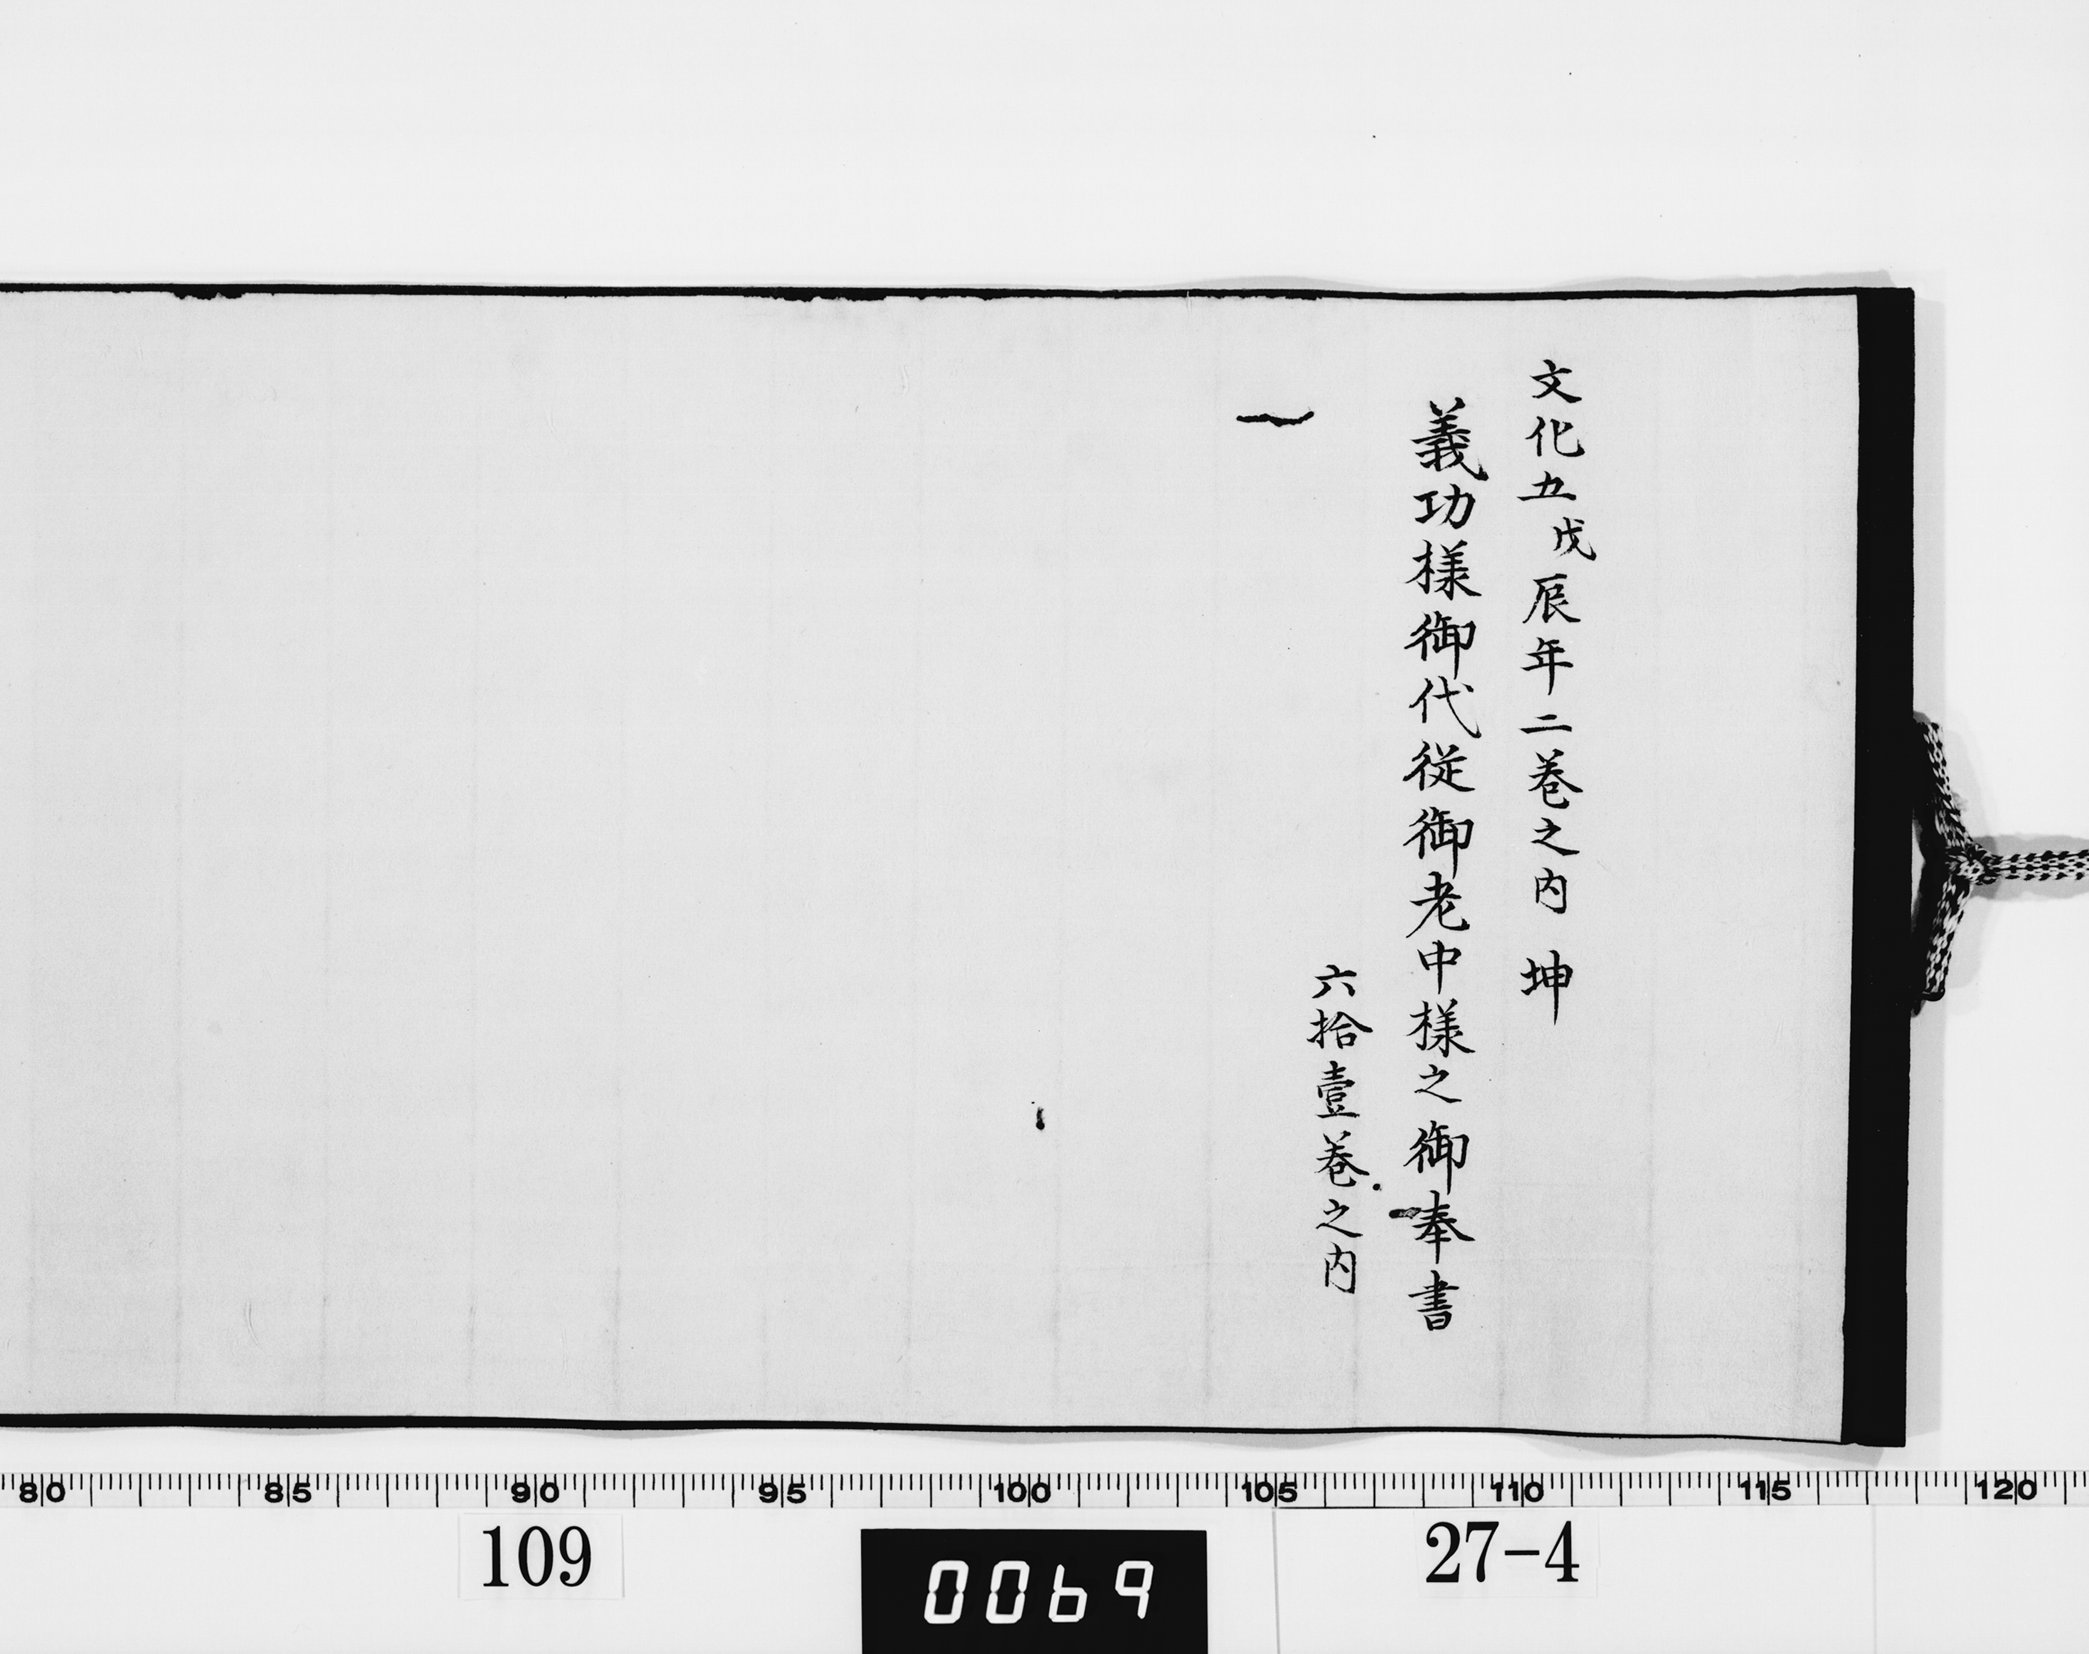 文化五戊辰年二巻之内 坤
義功様御代従御老中様之御奉書
六拾壹巻之内
80 85 90 95 100 105 110 115 120
109
0069
27-4